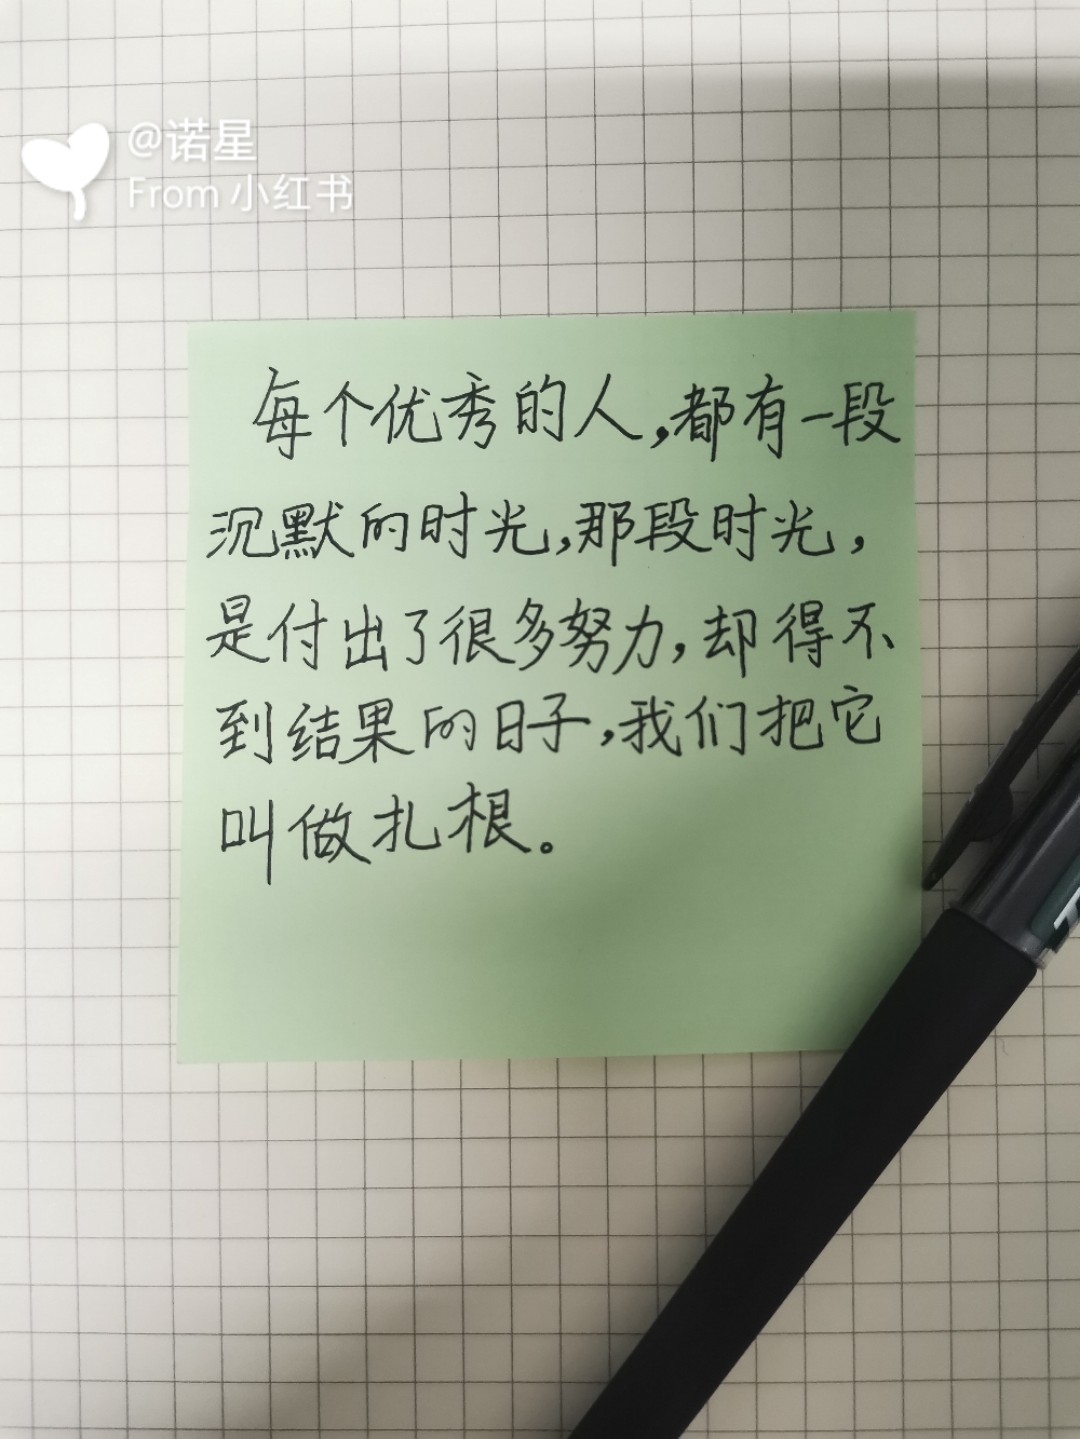 @诺星
From 小红书
每个优秀的人,都有一段
沉默的时光,那段时光,
是付出了很多努力,却得不
到结果的日子,我们把它
叫做扎根。